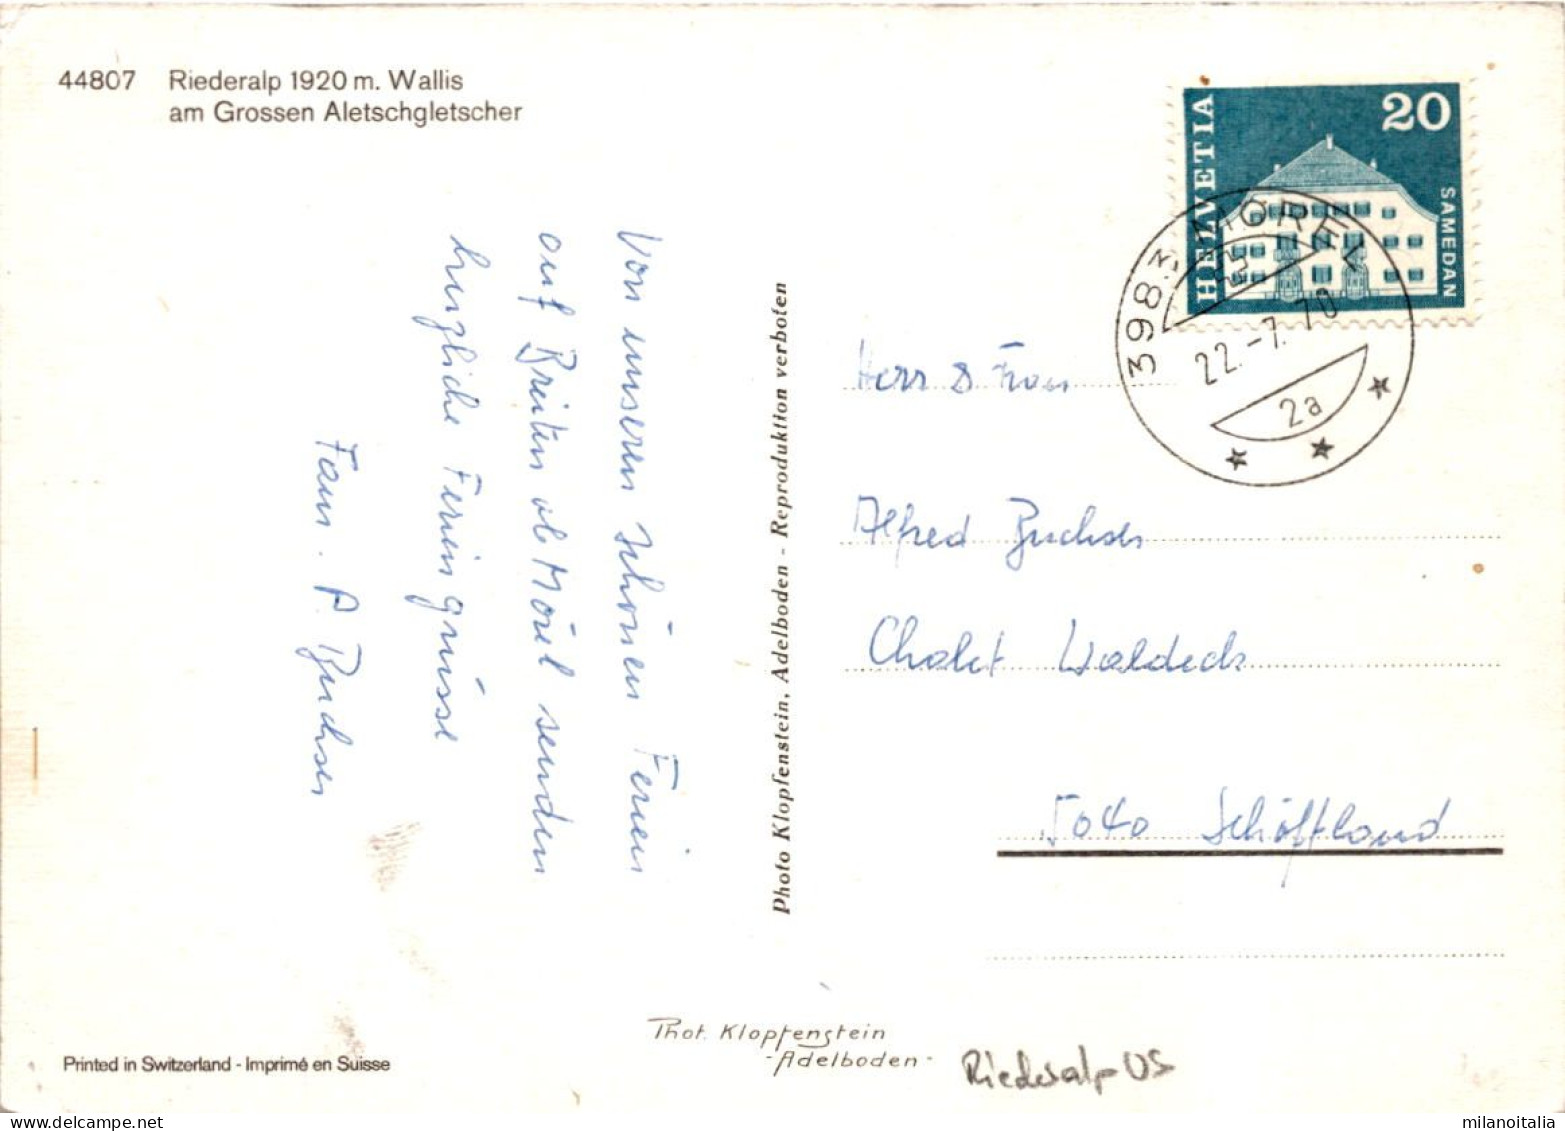 44807 Riederalp 1920 m. Wallis
am Grossen Aletschgletscher
Von unseren schönen Ferien
auf Breiten ob Mörel senden
herzliche Feriengrüsse
Fam. P. Buchser
Photo Klopfenstein, Adelboden - Reproduktion verboten
HELVETIA
20
SAMEDAN
3983 MÖREL
22.-7.70
2a
Herr & Frau
Alfred Buchser
Chalet Waldeck
5040 Schöftland
Phot. Klopfenstein
-Adelboden-
Printed in Switzerland - Imprimé en Suisse
Riederalp US
milanoitalia